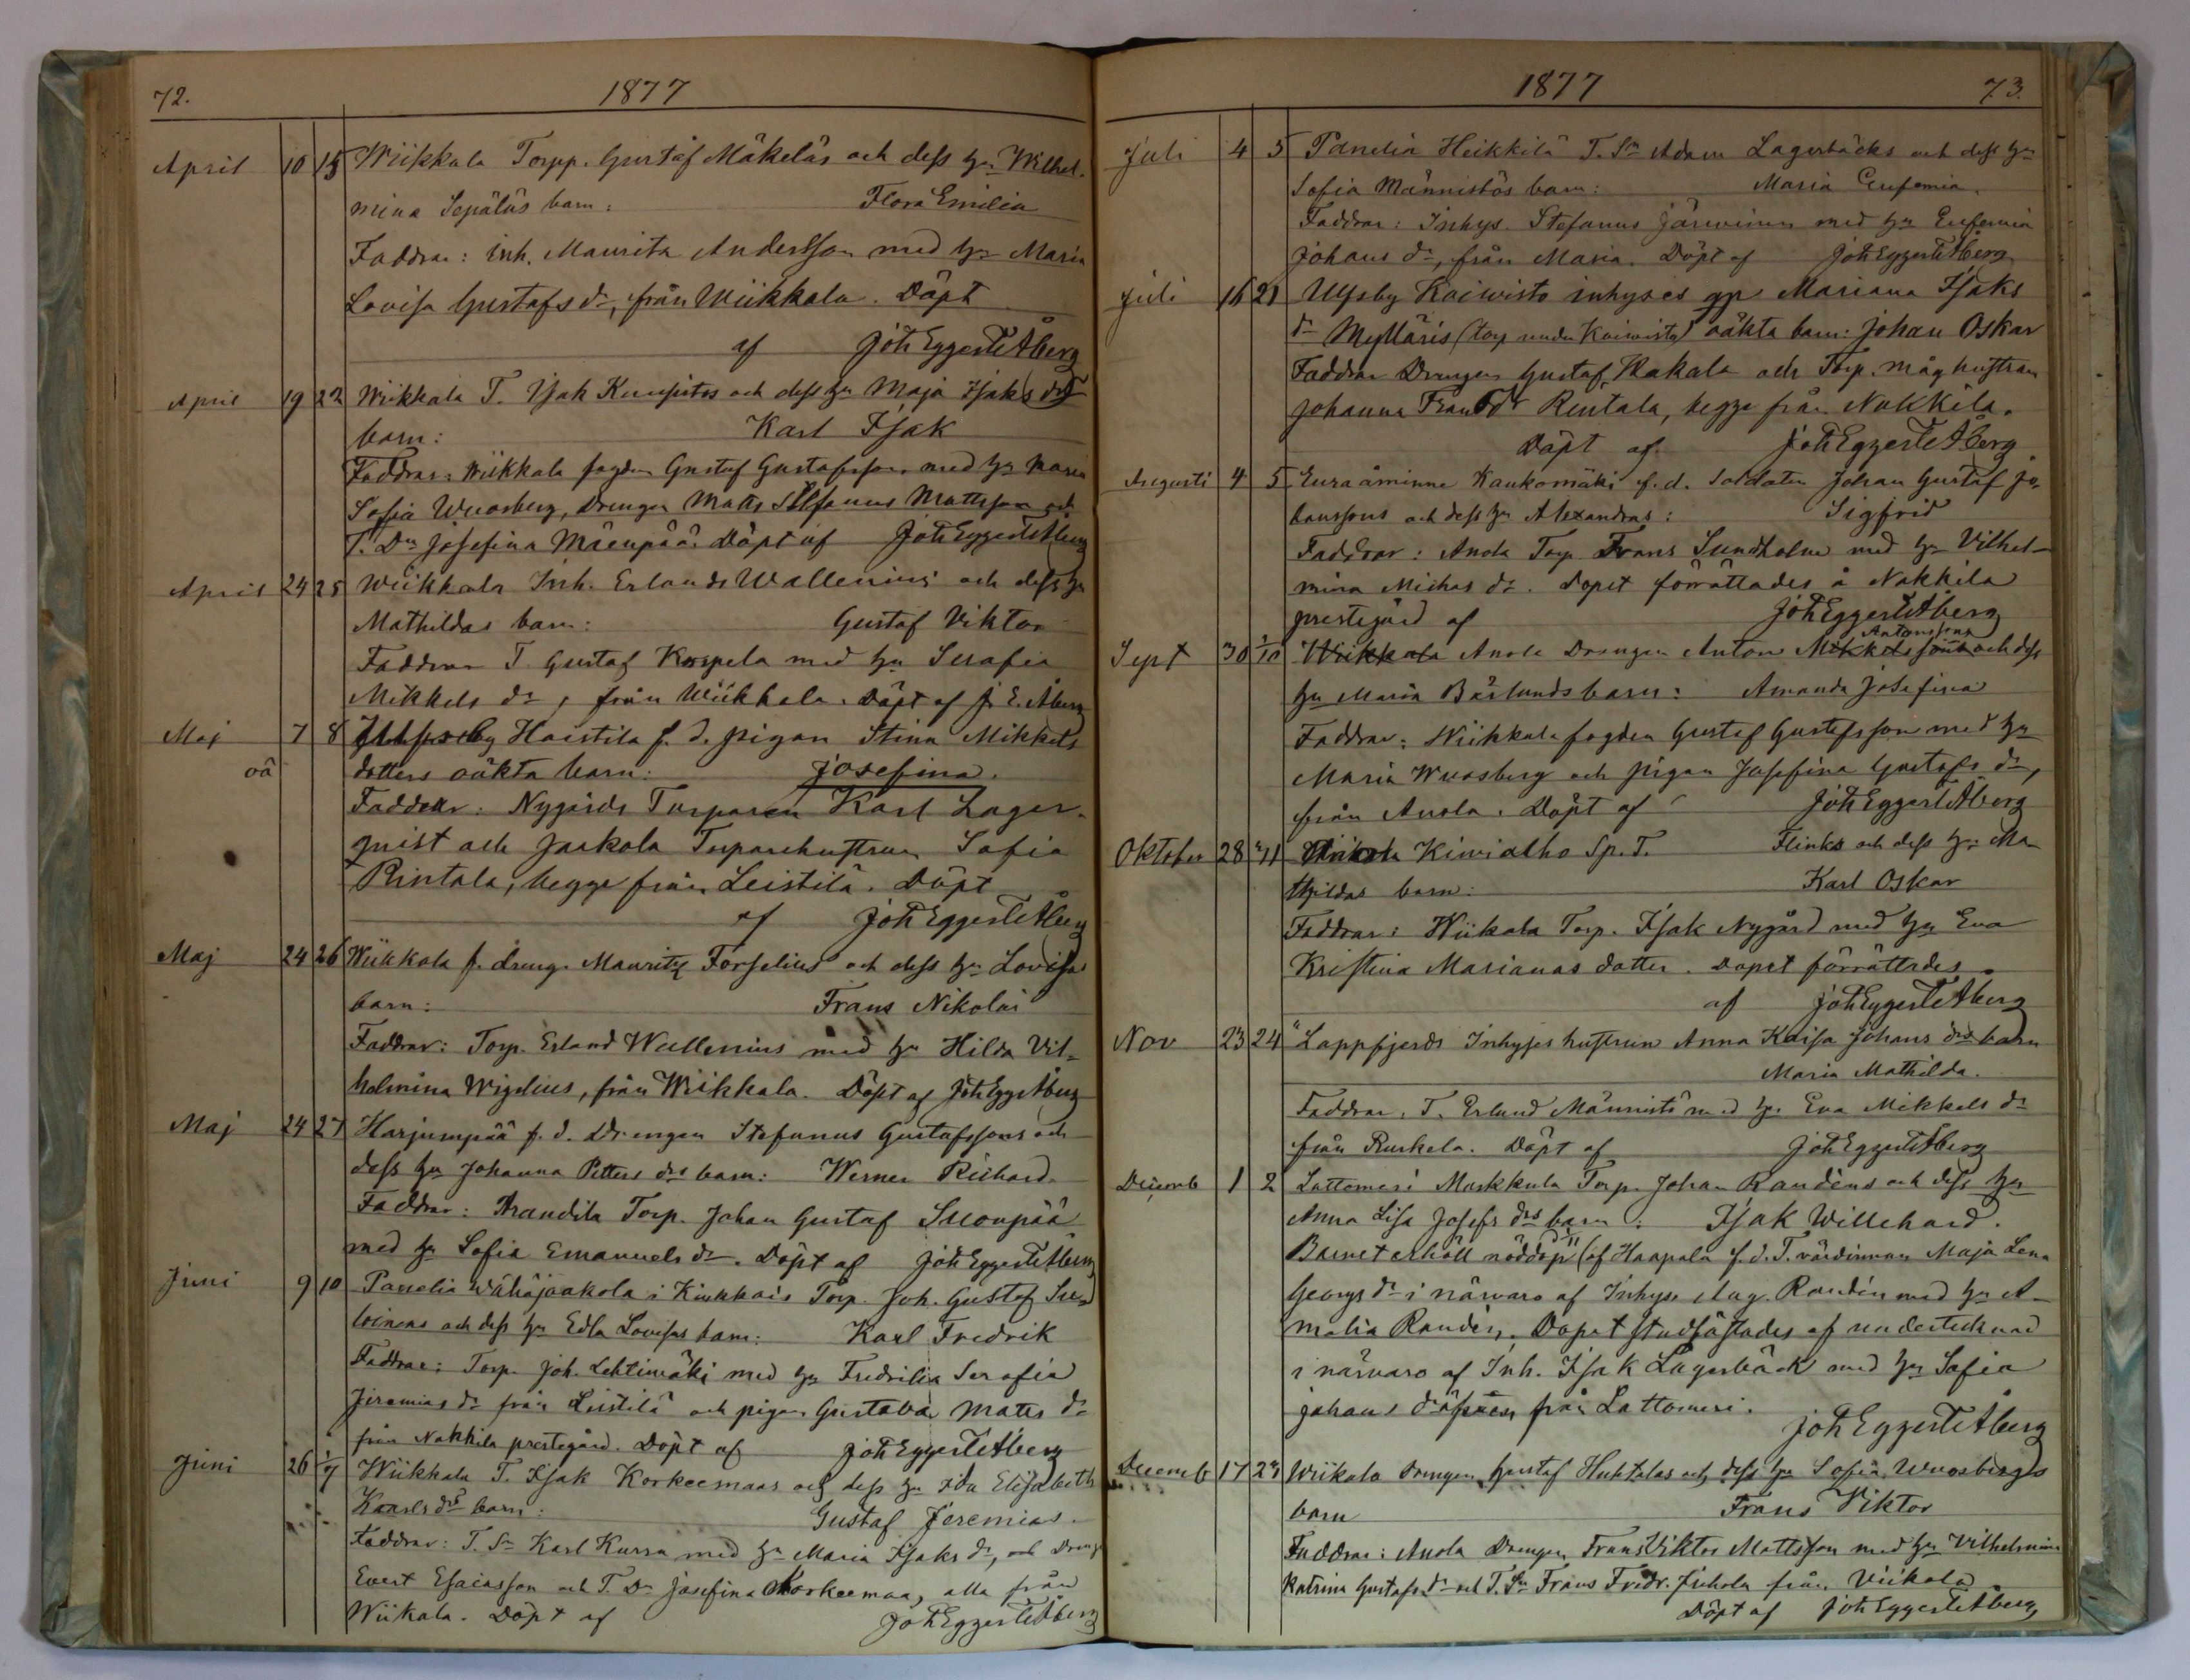 72.
1877
April 10 15 Wiikkala Torpp. Gustaf Mäkeläs och dess hu Wilhel-
mina Sepäläs barn: Flora Emilia
Faddrar: inh. Maurits Andersson med hu Maria
Lovisa Gustafs dr, från Wiikkala. Döpt
af Joh Eggert Åberg
April 19 22 Wiikkala T. Isak Kuusistos och dess hu Maja Isaks drs
barn: Karl Isak
Faddrar: Wiikkala fogden Gustaf Gustafsson med hu Maria
Sofia Wuosberg, Drengen Matts Stefanus Mattsson och
T. Dr Josefina Mäenpää. Döpt af Joh Eggert Åberg
April 24 25 Wiikkala Inh. Erlands Wallenius och dess hu
Mathildas barn: Gustaf Viktor
Faddrar T Gustaf Korpela med hu Serafia
Mikkels dr, från Wiikkala. Döpt af J. E. Åberg
Maj 7 8 Ulfsby Haistila f. d. pigan Stina Mikkels
oä dotters oäkta barn: Josefina.
Faddrar: Nygårds Torparen Karl Lager-
qvist och Jaakola Torparehustrun Sofia
Rintala, begge från Leistilä. Döpt
af Joh Eggert Åberg
Maj 24 26 Wiikkala f. dreng. Mauritz Forselius och dess hu Lovisas
barn: Frans Nikolai
Faddrar: Torp. Erland Wallenius med hu Hilda Vil-
helmina Wigelius, från Wiikkala. Döpt af Joh Egg Åberg
Maj 24 27 Harjunpää f. d. Drengen Stefanus Gustafssons och
dess hu Johanna Petters drs barn: Werner Richard.
Faddrar: Torp. Johan Gustaf
med hu Sofia Emanuels dr. Döpt af Joh Eggert Åberg
Juni 9 10 Panelia Wähäjaakola i Kiukkais Torp. Joh. Gustaf Su-
loinens och dess hu Edla Lovisas barn: Karl Fredrik
Faddrar: Torp. Joh. Lehtimäki med hu Fredrika Serafia
Jeremias dr från Leistilä och pigan Gustava Matts dr
från Nakkila prestegård. Döpt af Joh Eggert Åberg
Juni 26 1/7 Wiikkala T. Isak Korkeemaas och dess hu Ida Elisabeth
Kaarls drs barn: Gustaf Jeremias.
Faddrar: T. Sn Karl Kurra med hu Maria Isaks dr, och Dreng
Evert Esaiasson och T. Dr Josefina Korkeemaa, alla från
Wiikala. Döpt af Joh Eggert Åberg
1877
73.
Juli 4 5 Panelia Heikkilä T. Sn Adam Lagerbäcks och dess hu
Sofia Männistös barn: Maria Eufemia.
Faddrar: Inhys. Stefanus Järvinen med hu Eufemia
Johans dr, från Masia. Döpt af Joh Eggert Åberg
Juli 16 21 Ulfsby Koivisto inhyses gp Mariana Isaks
dr Mylläris (torp under Koivisto) oäkta barn: Johan Oskar
Faddrar Drengen Gustaf Hakala och Torp. måg hustrun
Johanna Frans dr Rentala, begge från Nakkila.
Döpt af Joh Eggert Åberg
Augusti 4 5 Euraåminne Kaukomäki f. d. Soldaten Johan Gustaf Jo-
hanssons och dess hu Alexandras: Sigfrid
Faddrar: Anola Torp Frans Sundholm med hu Vilhel-
mina Mickas dr. Dopet förrättades å Nakkila
prestegård af Joh Eggert Åberg
Sept 30 1/10 Wiikkala Anola Drengen Anton Mikkelssons Antonssons och dess
hu Maria Bärlunds barn: Amanda Josefina
Faddrar: Wiikkala fogden Gustaf Gustafsson med hu
Maria Wuosberg och pigan Josefina Gustafs dr,
från Anola. Döpt af Joh Eggert Åberg
Oktober 28 4/11 Kivialho Sp. T. Flinks och dess hu Ma
thildas barn: Karl Oskar
Faddrar: Wiikala Torp. Isak Nygård med hu Eva
Kristina Marianas dotter. Dopet förrättades
af Joh Eggert Åberg
Nov 23 24 Lappfjerds Inhyses hustrun Anna Kaisa Johans drs barn
Maria Mathilda.
Faddrar. T. Erland Männistö med hu Eva Mikkels dr
från Ruskela. Döpt af Joh Eggert Åberg
Decemb 1 2 Lattomeri Markkula Torp. Johan Randéns och dess hu
Anna Lisa Josefs drs barn: Isak Willehard.
Barnet erhöll nöddop (af Haapala f. d. T. värdinnan Maja Lena
Georgs dr i närvaro af Inhys Aug. Randén med hu A-
malia Randén. Dopet stadfästades af undertecknad
i närvaro af Inh. Isak Lagerbäck med hu Sofia
Johans dr från Lattomeri.
Joh Eggert Åberg
Decemb 17 23 Wiikala drengen Gustaf Huhtalas och dess hu Sofia Wuosbergs
barn Frans Viktor
Faddrar: Anola Drengen Frans Viktor Mattsson med hu Vilhelmina
Katrina Gustafs dr och T. Sn Frans Fredr. Juhola från Viikala
Döpt af Joh Eggert Åberg